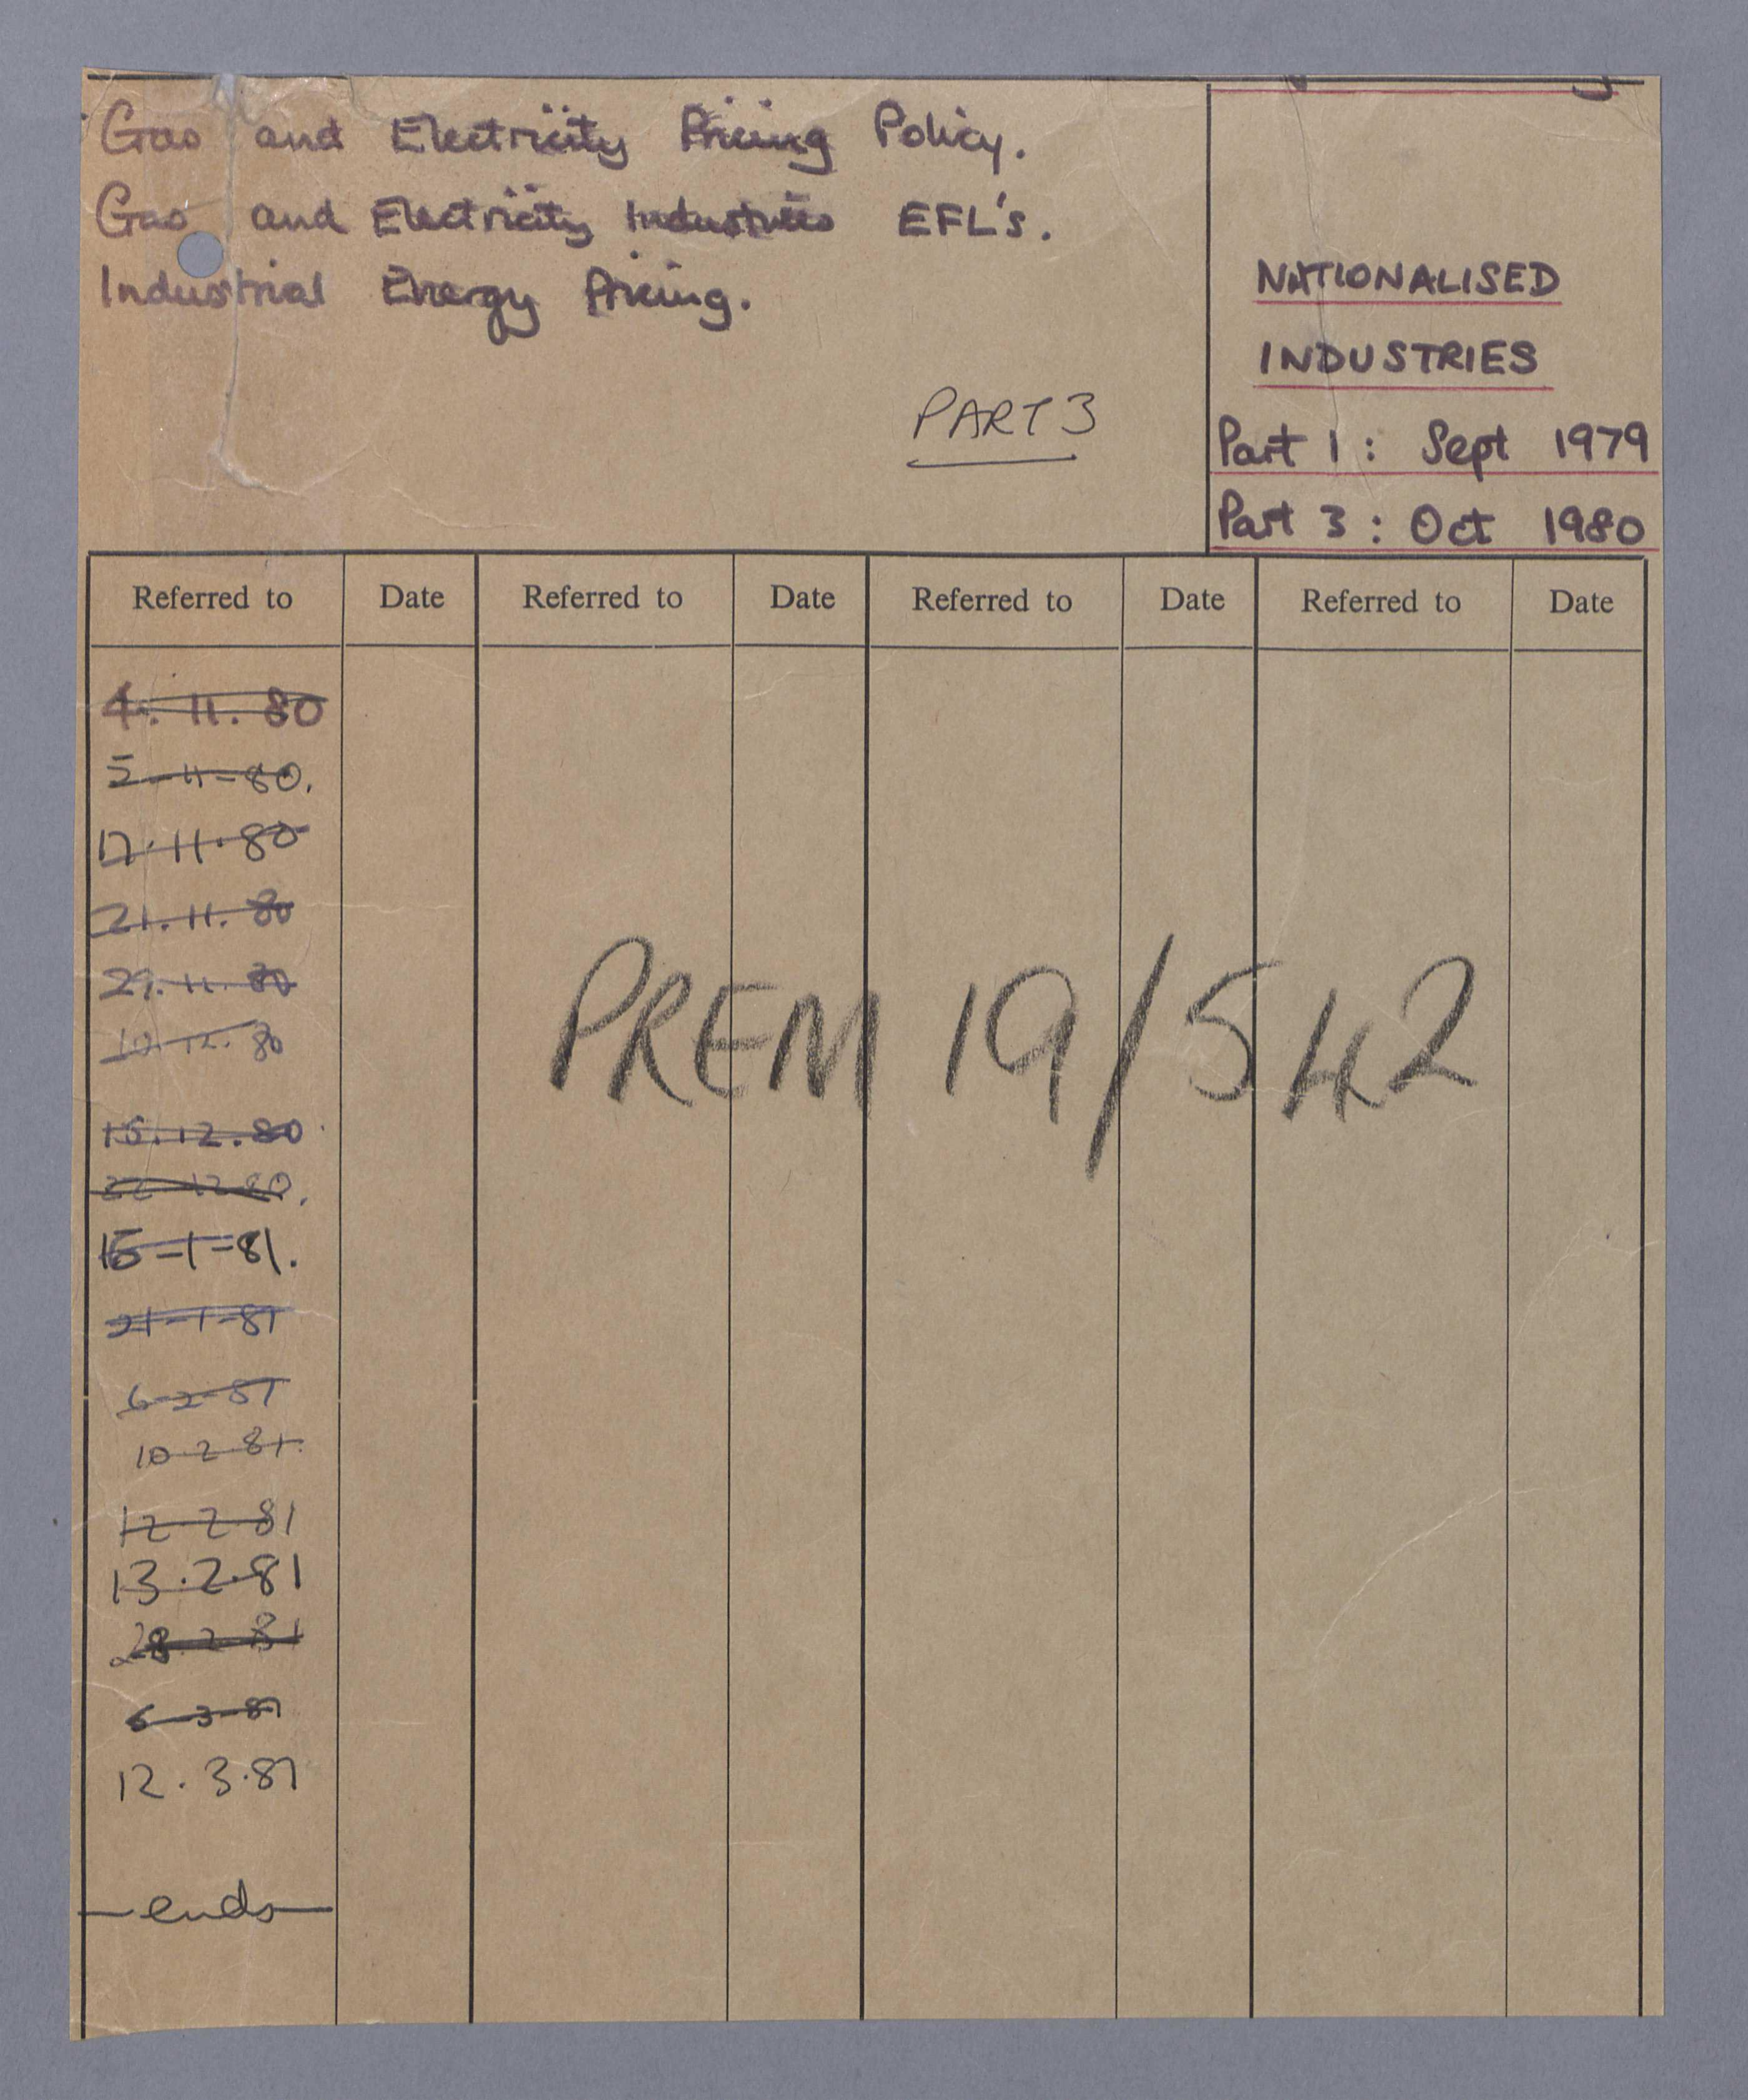 Gas and Electricity Pricing Policy.
Gas and Electricity Industries EFL's.
Industrial Energy Pricing.
PART 3
NATIONALISED
INDUSTRIES
Part 1 : Sept 1979
Part 3 : Oct 1980
Referred to Date Referred to Date Referred to Date Referred to Date
4. 11. 80
5-11-80.
17.11.80
21.11.80
29.11.80
10.12.80
15.12.80
22-12-80.
15-1-81.
21-1-81
6-2-81
10-2-81.
12-2-81
13.2.81
28.2.81
6-3-81
12.3.81
-ends-
PREM 19/542